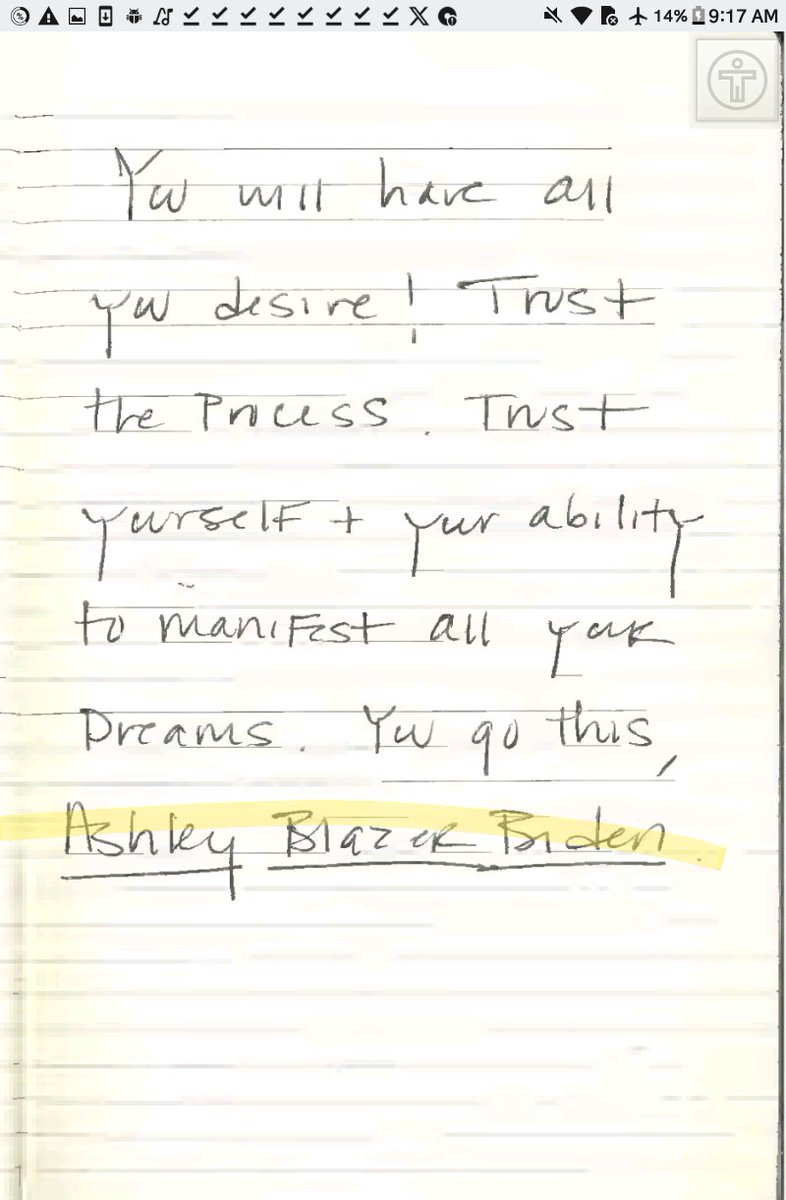 14% 9:17 AM
You will have all
you desire! Trust
the Process. Trust
yourself + your ability
to manifest all your
Dreams. You go this,
Ashley Blazer Biden.